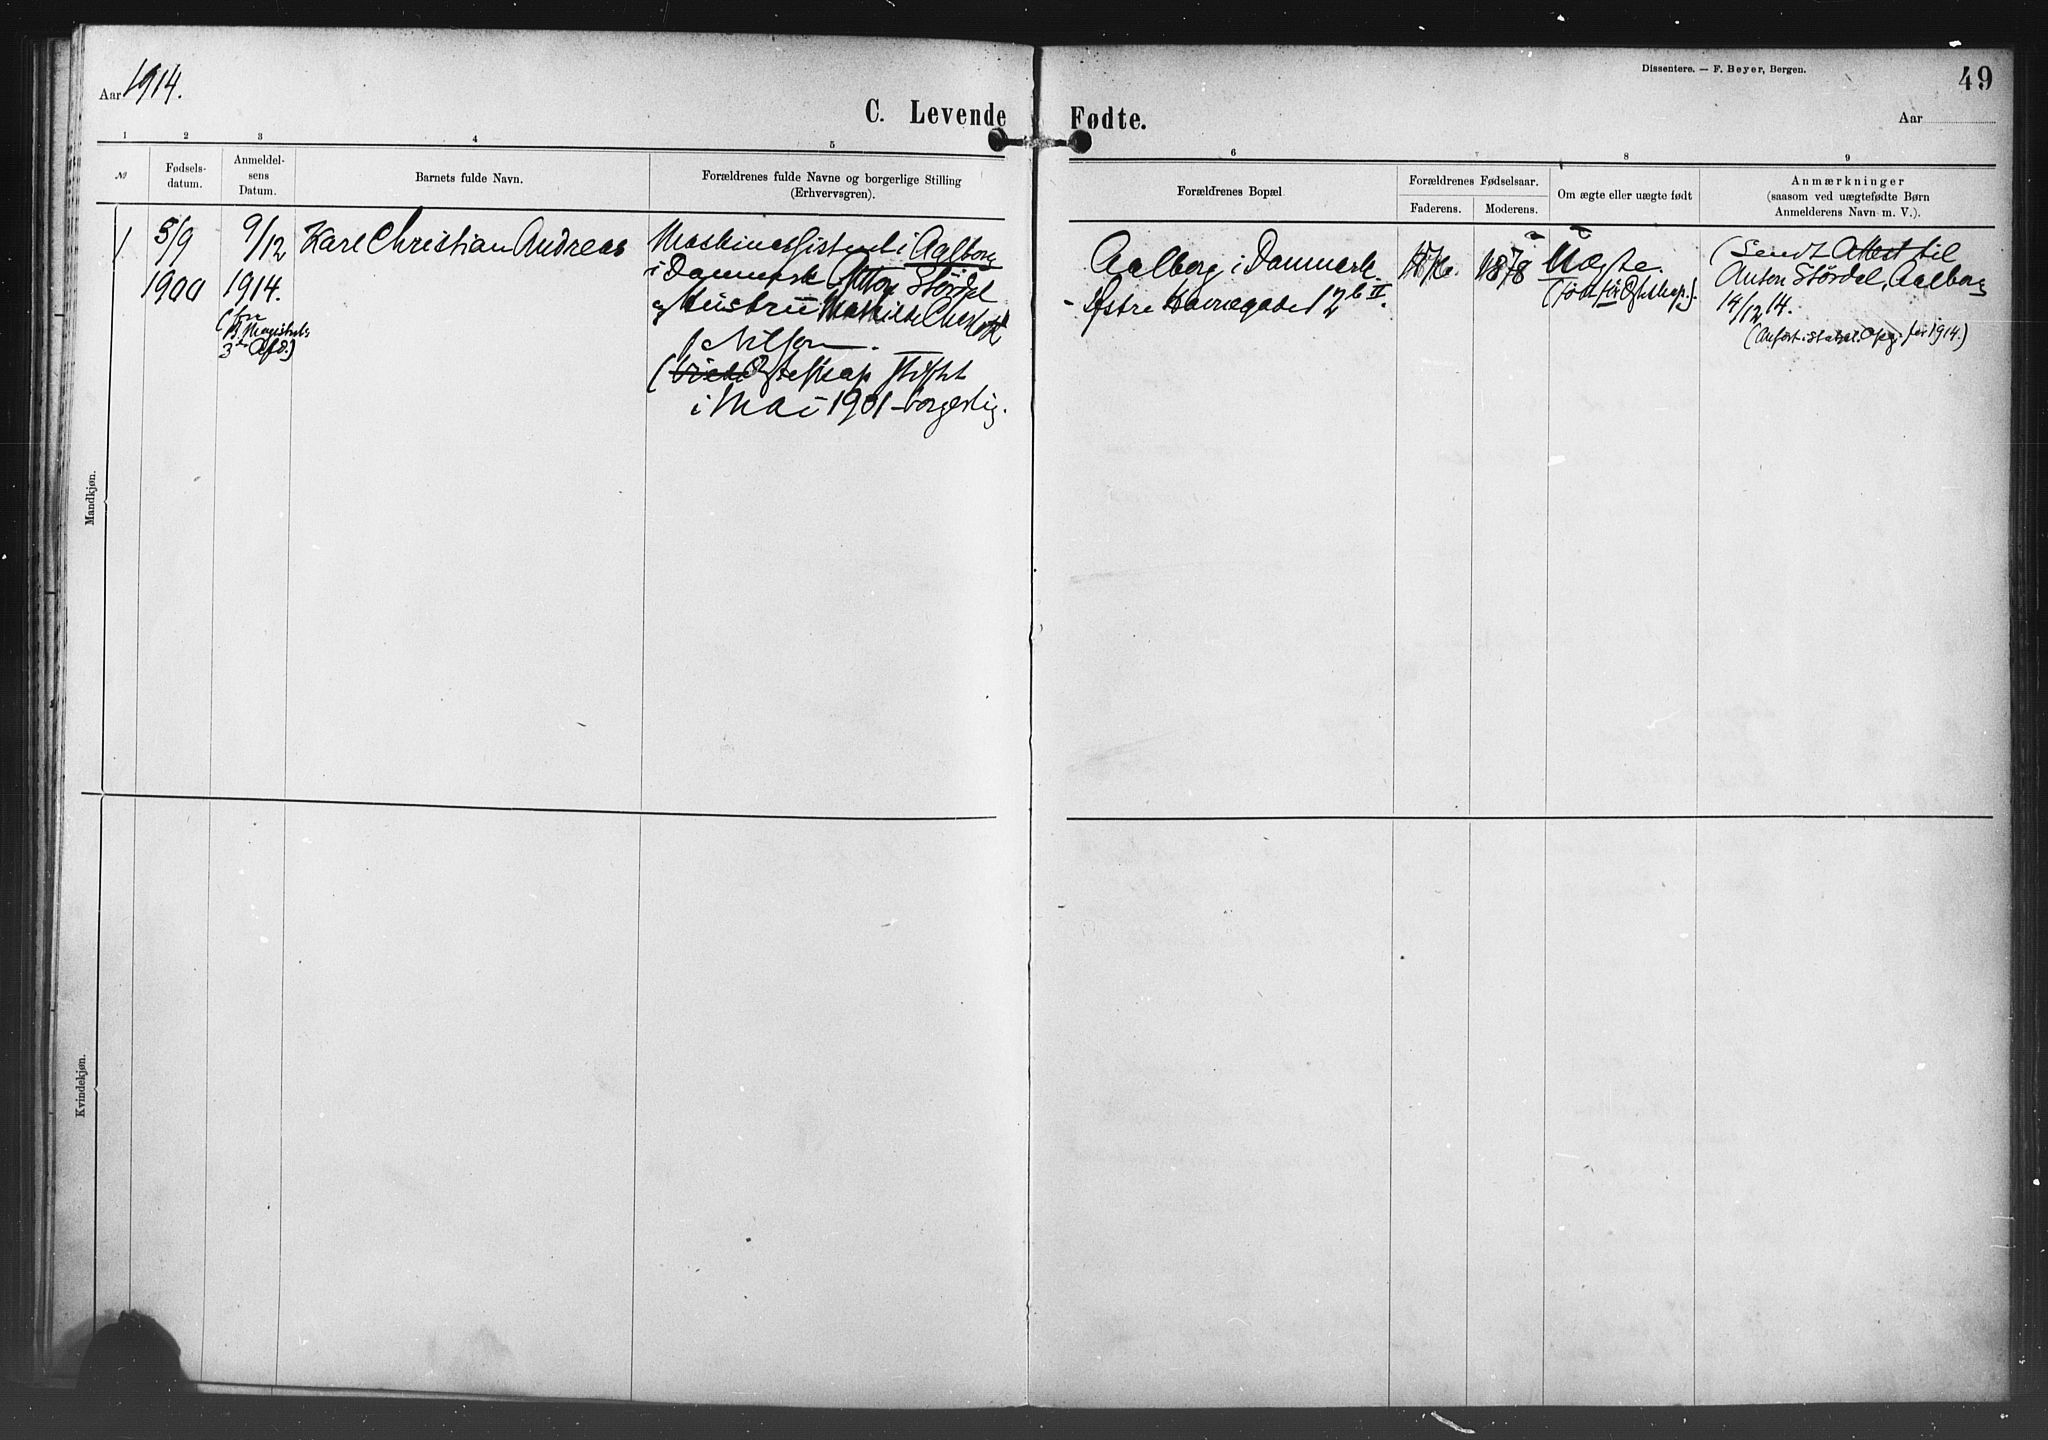 Dissentere. — F. Beyer, Bergen.
49
Aar 1914.
C. Levende Fødte.
Aar
1 2 3 4 5 6 7 8 9
№
Fødsels-
datum.
Anmeldel-
sens
Datum.
Barnets fulde Navn.
Forældrenes fulde Navne og borgerlige Stilling
(Erhvervsgren).
Forældrenes Bopæl.
Forældrenes Fødselsaar.
Faderens.
Moderens.
Om ægte eller uægte født
Anmærkninger
(saasom ved uægtefødte Børn
Anmelderens Navn m. V.).
Mandkjøn.
1
5/9
1900
9/12
1914.
(fra
Magistrats
3die Afd.)
Karl Christian Andreas
Maskinassistent i Aalborg
i Danmark Anton Stördal
og Hustru
f. Nilsen.
(Egteskap stiftet
i Mai 1901 – borgerlig.
Aalborg i Danmark
– Østre Havnegade 12 b II.
1876.
1878
Uægte.
(født før Egteskap.).
(Sendt Attest til
Anton Stördal, Aalborg
14/12 14.
(Anført i statist. Opg. for 1914.)
Kvindekjøn.